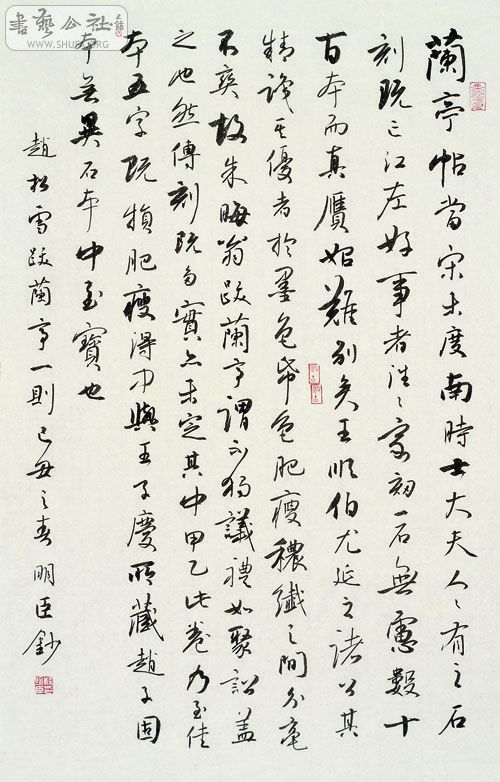 蘭亭帖當宋未度南時士大夫人々有之石
刻既亡江左好事者往々家初一石無慮數十
百本而真贗始難別矣王順伯尤延之諸公其
精識其優者於墨色紙色肥瘦穠纖之間分毫
不爽故朱晦翁跋蘭亭謂不獨議禮如聚訟蓋
之也然傳刻既多實亦未定其中甲乙此卷乃至佳
本五字既損肥瘦得中與王子慶所藏趙子固
本無異石本中至寶也
趙松雪跋蘭亭一則己丑之春明臣鈔
書藝公社
www.SHUFA.ORG